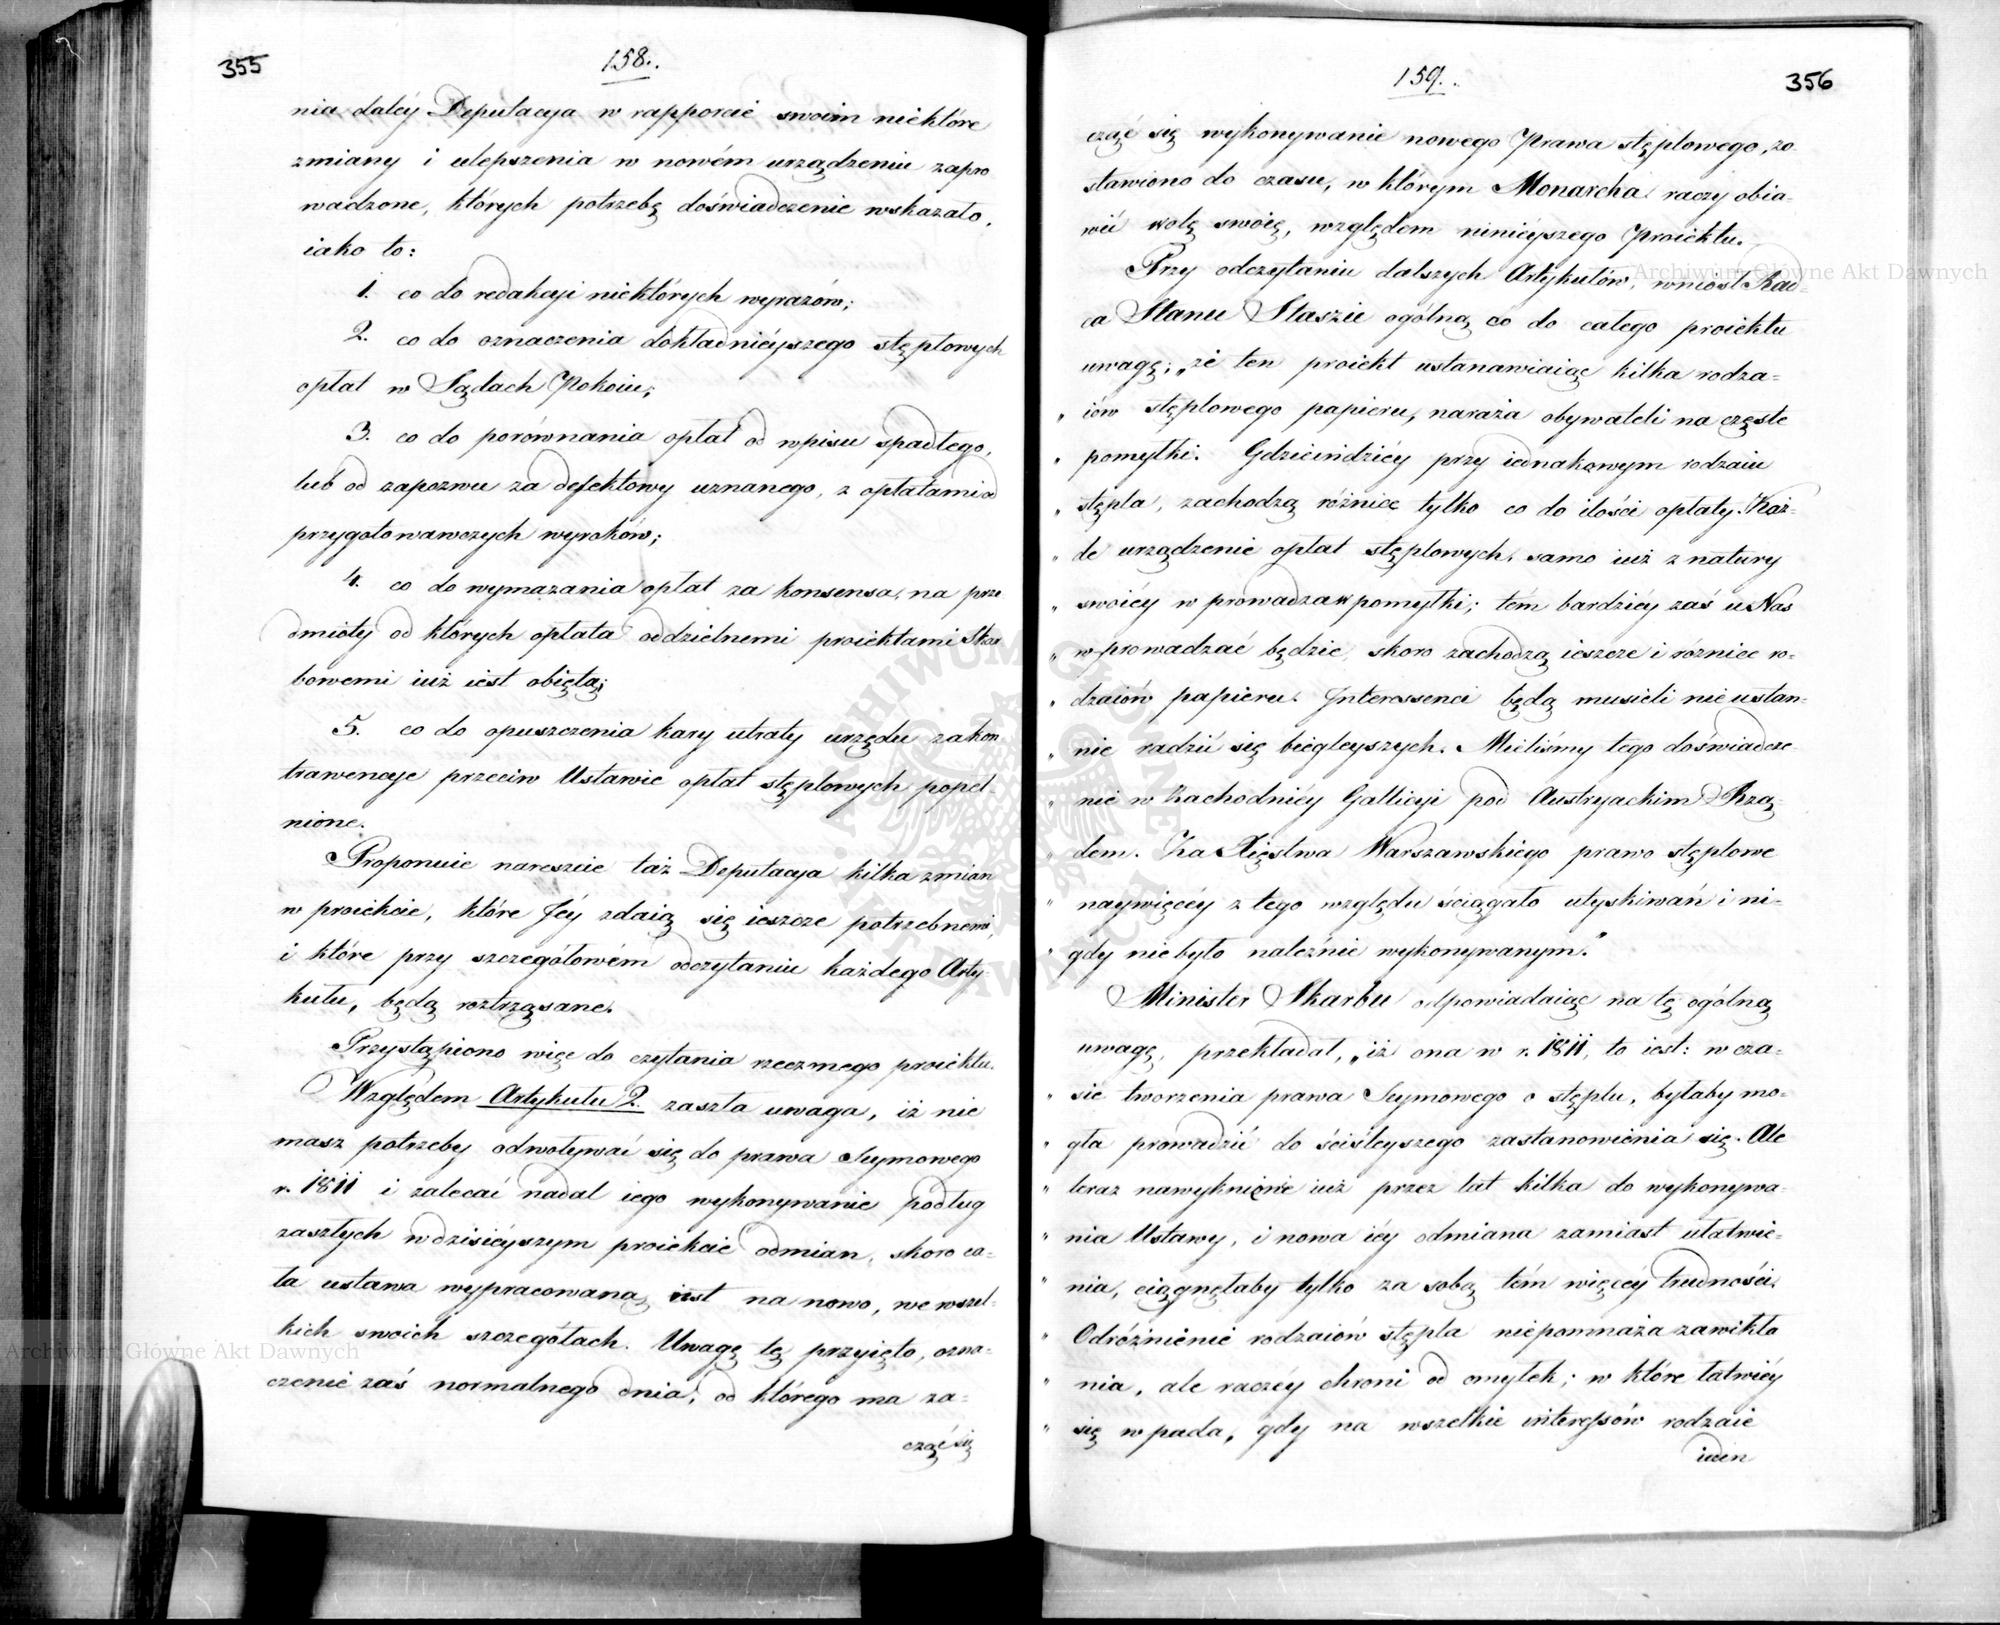 355
158.
nia daléy Deputacya w rapporcie swoim niektóre
zmiany i ulepszenia w nowém urządzeniu zapro
wadzone, których potrzebę doświadczenie wskazało,
iako to:
1. co do redakcyi niektórych wyrazów;
2. co do oznaczenia dokładnieyszego stęplowych
opłat w Sądach Pokoiu;
3. co do porównania opłat od wpisu spadłego,
lub od zapozwu za defektowy uznanego, z opłatami od
przygotowawczych wyroków;
4. co do wymazania opłat za konsensa, na prze
dmioty od których opłata oddzielnemi proiektami Skar
bowemi iuż iest obięta;
5. co do opuszczenia kary utraty urzędu za kon
trawencye przeciw Ustawie opłat stęplowych popeł-
nione.
Proponuie nareszcie taż Deputacya kilka zmian
w proiekcie, które Jéy zdaią się ieszcze potrzebnemi,
i które przy szczegółowém odczytaniu każdego Arty-
kułu, będą roztrząsane.
Przystąpiono więc do czytania rzeczonego proiektu.
Względem Artykułu 2. zaszła uwaga, iż nie
masz potrzeby odwoływać się do prawa Seymowego
r. 1811 i zalecać nadal iego wykonywanie podług
zaszłych w dzisiéyszym proiekcie odmian, skoro ca-
ła ustawa wypracowaną iest na nowo, we wszel-
kich swoich szczegółach. Uwagę tę przyięto, ozna-
czenie zaś normalnego dnia, od którego ma za-
cząć się
159.
356
cząć się wykonywanie nowego Prawa stęplowego, zo-
stawiono do czasu, w którym Monarcha raczy obia-
wić wolę swoię, względem ninieyszego Proiektu.
Przy odczytaniu dalszych Artykułów, wniósł Rad-
ca Stanu Staszic ogólną co do całego proiektu
uwagę; „że ten proiekt ustanawiaiąc kilka rodza-
„ iów stęplowego papieru, naraża obywateli na częste
„ pomyłki. Gdzieindziéy przy iednakowym rodzaiu
„ stępla, zachodzą różnice tylko co do ilości opłaty. Każ-
„ de urządzenie opłat stęplowych, samo iuż z natury
„ swoiéy wprowadza w pomyłki; tém bardziéy zaś u Nas
„ wprowadzać będzie, skoro zachodzą ieszcze i różnice ro-
„ dzaiów papieru. Interessenci będą musieli nieustan-
„ nie radzić się biegleyszych. Mieliśmy tego doświadcze-
„ nie w Zachodniéy Gallicyi pod Austryackim Rzą-
„ dem. Za Xięstwa Warszawskiego prawo stęplowe
„ naywięcéy z tego względu ściągało utyskiwań i ni-
„ gdy nie było należnie wykonywanym."
Minister Skarbu odpowiadaiąc na tę ogólną
uwagę, przekładał, „iż ona w r. 1811, to iest: w cza-
„ sie tworzenia prawa Seymowego o stęplu, byłaby mo-
„ gła prowadzić do ściśleyszego zastanowienia się. Ale
„ teraz nawyknięcie iuż przez lat kilka do wykonywa-
„ nia Ustawy, i nowa iéy odmiana zamiast ułatwie-
„ nia, ciągnęłaby tylko za sobą tém więcéy trudności.
„ Odróżnienie rodzaiów stępla niepomnaża zawikła
„ nia, ale raczéy chroni od omyłek; w które łatwiéy
„ się wpada, gdy na wszelkie interessów rodzaie
ieden
Archiwum Główne Akt Dawnych
Archiwum Główne Akt Dawnych
ARCHIWUM GŁÓWNE AKT DAWNYCH